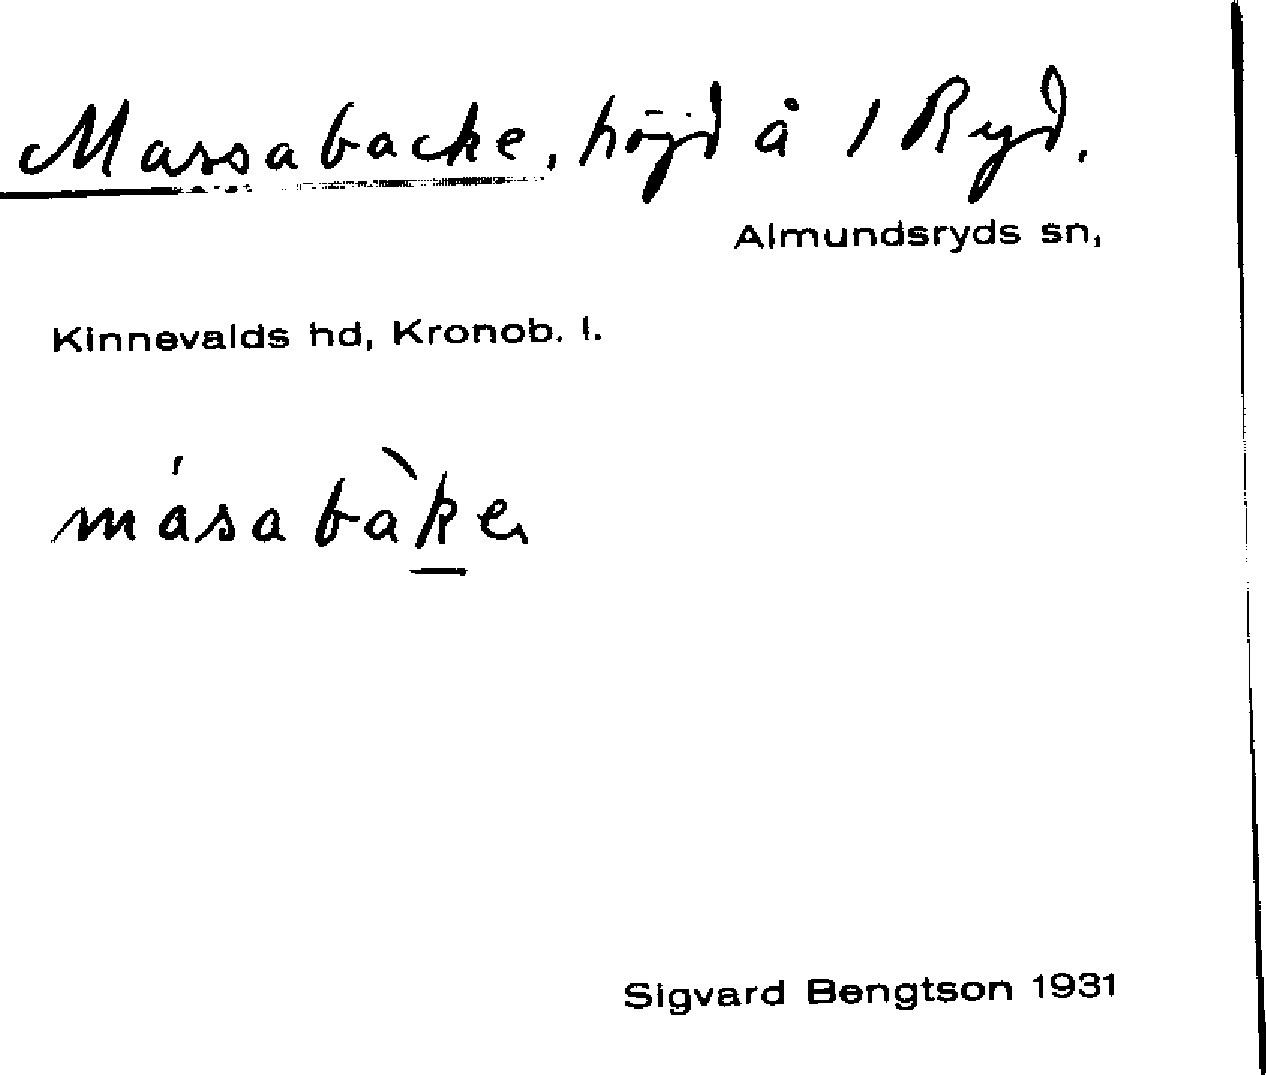 Massabacke, höjd å 1 Ryd.
Almundsryds sn,
Kinnevalds hd, Kronob. l.
másabàke
Sigvard Bengtson 1931